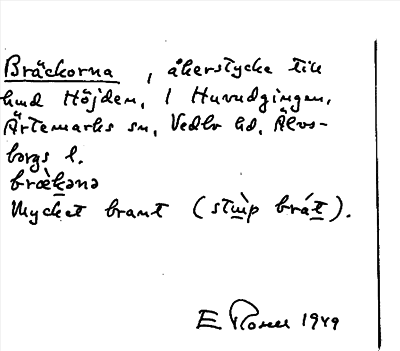 Bräckorna, åkerstycke till
hmd Höjden, i Huvudgingen,
Ärtemarks sn, Vedbo hd, Älvs-
borgs l.
bræ̀kənə
Mycket brant (stup brát).
E Rosell 1949